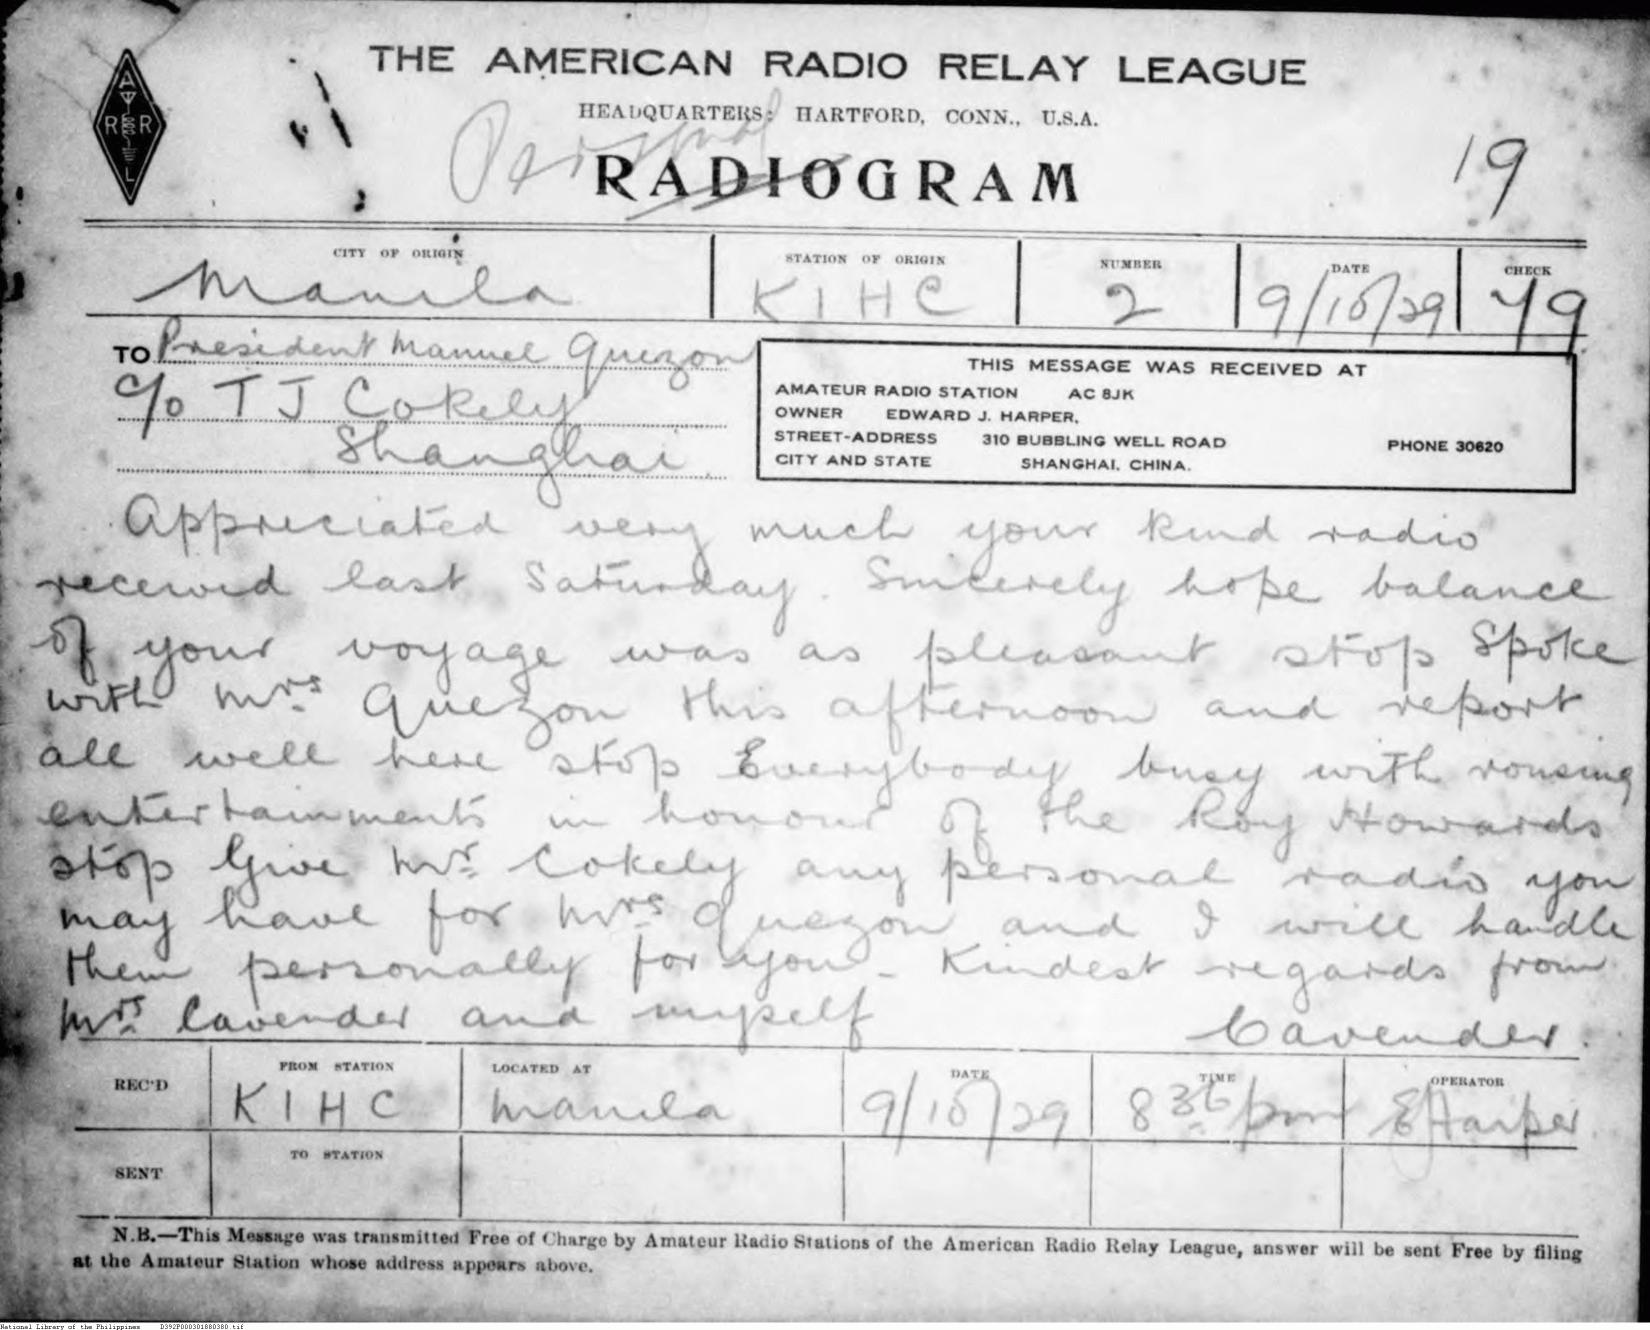 THE AMERICAN RADIO RELAY LEAGUE
HEADQUARTERS: HARTFORD, CONN., U.S.A.
Personal
RADIOGRAM
19
A
R R
L
CITY OF ORIGIN STATION OF ORIGIN NUMBER DATE CHECK
Manila K1HC 2 9/10/29 79
TO President Manuel Quezon
c/o T J Cokely
Shanghai
THIS MESSAGE WAS RECEIVED AT
AMATEUR RADIO STATION AC 8JK
OWNER EDWARD J. HARPER,
STREET-ADDRESS 310 BUBBLING WELL ROAD PHONE 30620
CITY AND STATE SHANGHAI, CHINA.
Appreciated very much your kind radio
received last Saturday. Sincerely hope balance
of your voyage was as pleasant stop Spoke
with Mrs Quezon this afternoon and report
all well here stop Everybody busy with rousing
entertainments in honour of the Roy Howards
stop Give Mr. Cokely any personal radio you
may have for Mrs Quezon and I will handle
them personally for you - Kindest regards from
Mrs. Cavender and myself
Cavender.
REC'D FROM STATION LOCATED AT DATE TIME OPERATOR
K1HC Manila 9/10/29 8 36 pm EJHarper
SENT TO STATION
N.B.—This Message was transmitted Free of Charge by Amateur Radio Stations of the American Radio Relay League, answer will be sent Free by filing
at the Amateur Station whose address appears above.
National Library of the Philippines D392P000301880380.tif